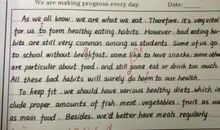 We are making progress every day. Date:
As we all know, we are what we eat. Therefore, it's vital
for us to form healthy eating habits. However, bad eating ha-
bits are still very common among us students. Some of us go
to school without breakfast, some like to have snacks, some other
are particular about food, and still some eat or drink too much.
All these bad habits will surely do harm to our health.
To keep fit, we should have various healthy diets, which in
clude proper amounts of fish, meat, vegetables, fruit as we
as main food. Besides, we'd better have meals regularly